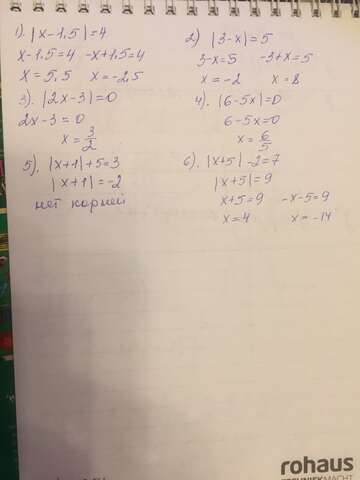 1). |x-1,5|=4
x-1,5=4 -x+1,5=4
x=5,5 x=-2,5
2) |3-x|=5
3-x=5 -3+x=5
x=-2 x=8
3). |2x-3|=0
2x-3=0
x=3/2
4). |6-5x|=0
6-5x=0
x=6/5
5). |x+1|+5=3
|x+1|=-2
нет корней
6). |x+5|-2=7
|x+5|=9
x+5=9 -x-5=9
x=4 x=-14
rohaus